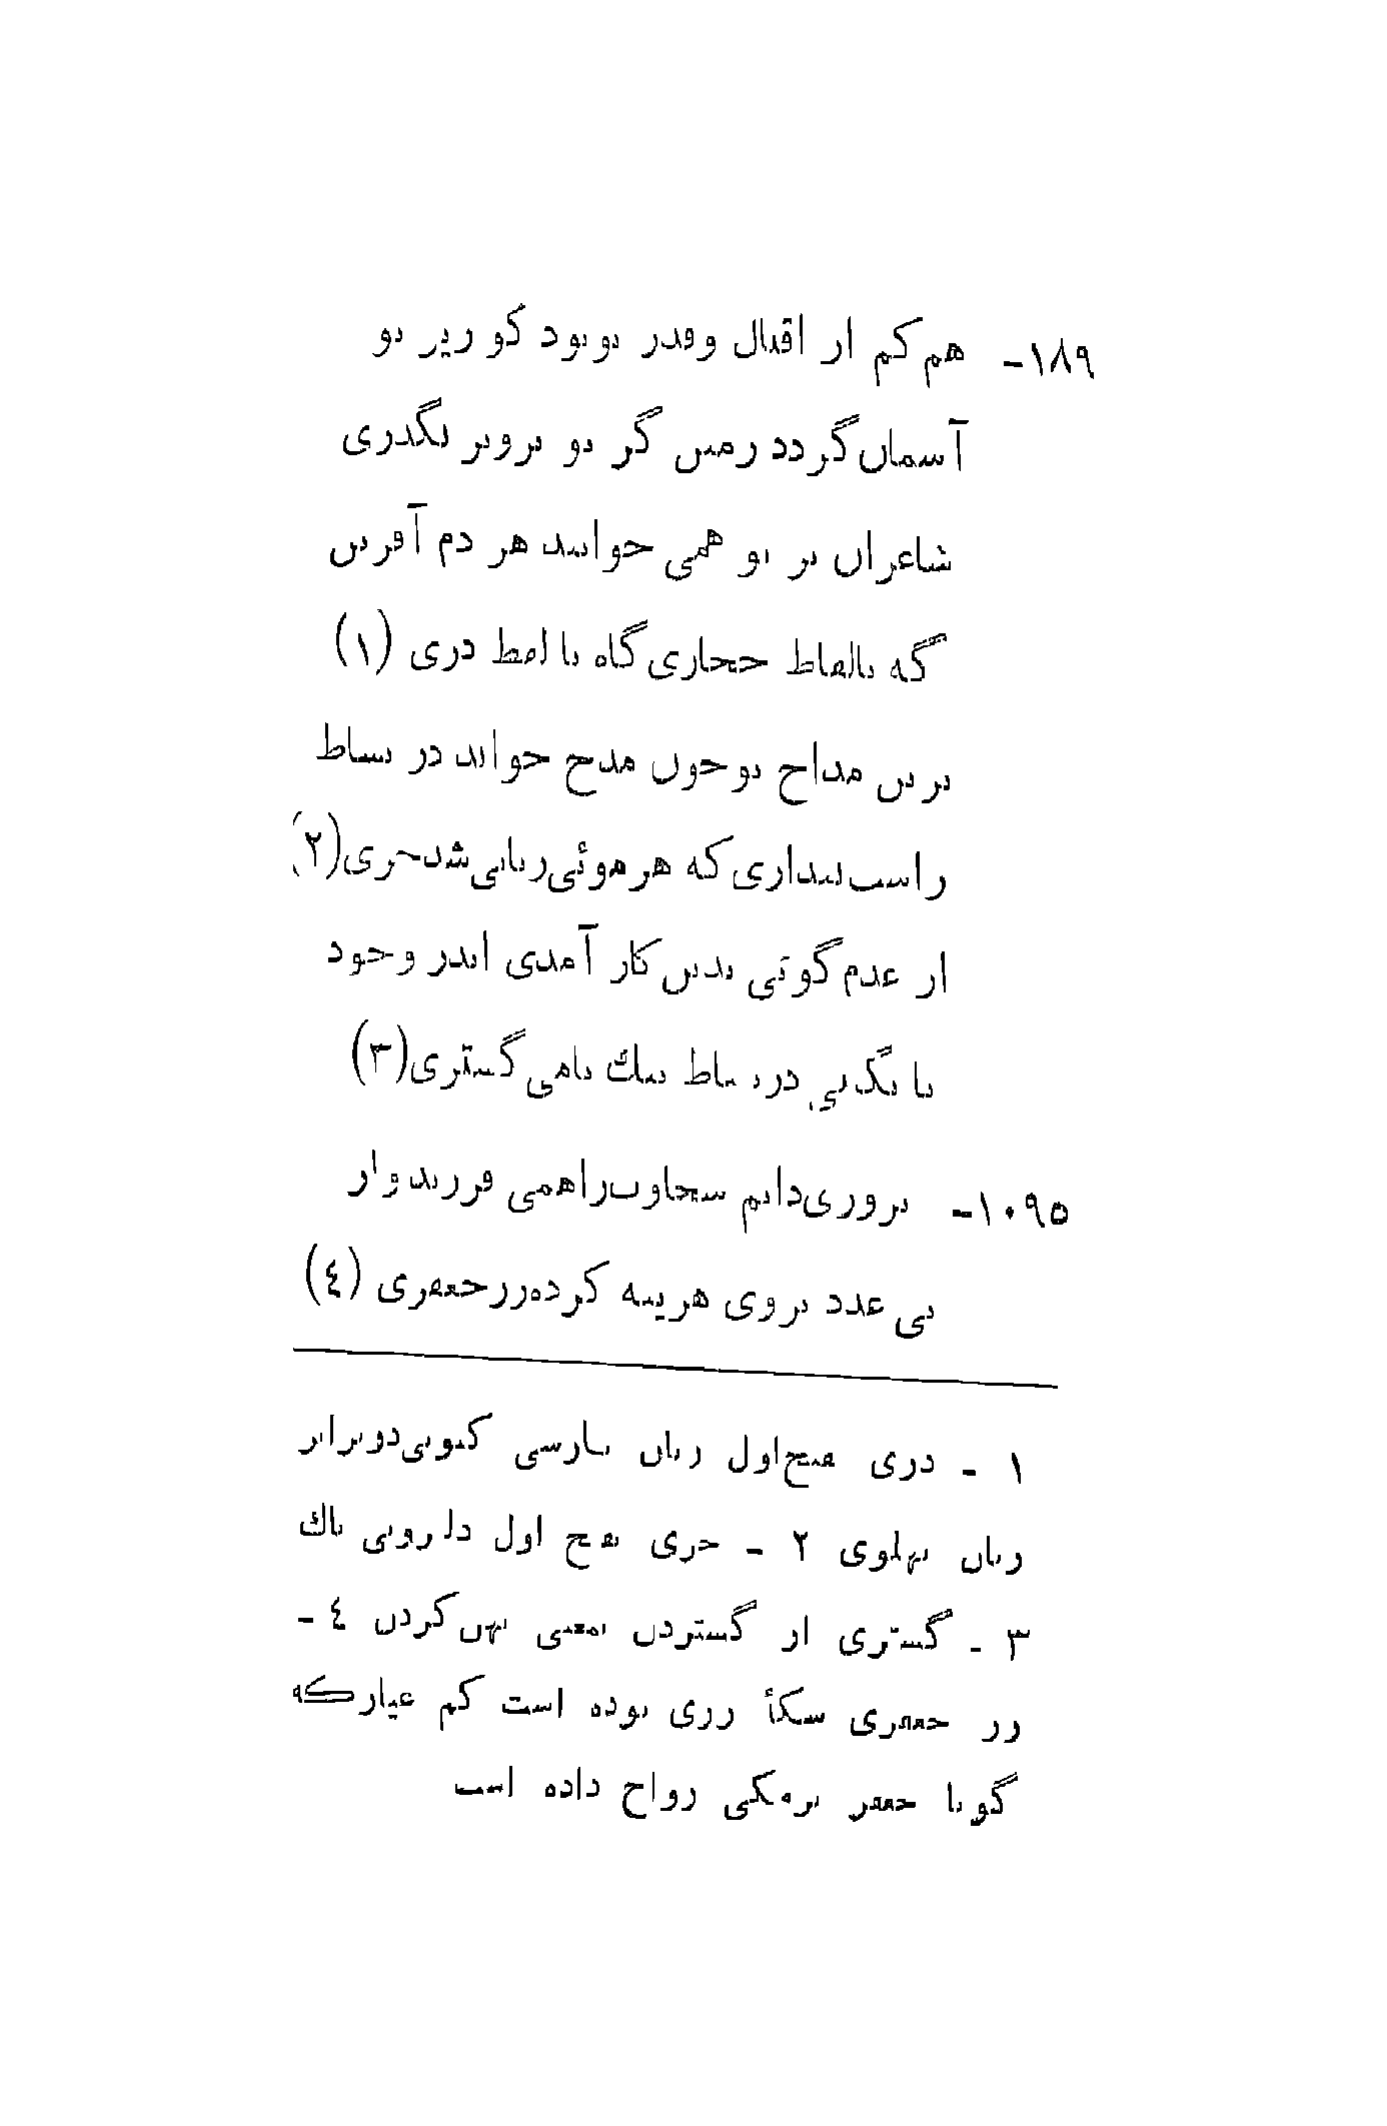 ۱۸۹- هم کم از اقبال وقدر تو بود کو زیر تو
آسمان گردد زمین گر تو بروبر بگذری
شاعران بر تو همی خوانند هر دم آفرین
گه بالفاظ حجازی گاه با لفظ دری (۱)
برتن مداح تو چون مدح خواند در بساط
راست پنداری که هر موئی زبانی شد جری (۲)
از عدم گوئی بدین کار آمدی اندر وجود
تا بگیتی در بساط نیک نامی گستری (۳)
۱۰۹۵- پروری دایم سخاوت را همی فرزند وار
بی عدد بروی هزینه کرده زر جعفری (٤)
۱ - دری بفتح اول زبان پارسی کنونی دو برابر
زبان پهلوی ۲ - جری بفتح اول دلیر و بی باک
۳ - گستری از گستردن بمعنی پهن کردن ٤ -
زر جعفری سکهٔ زری بوده است کم عیار که
گویا جعفر برمکی رواج داده است